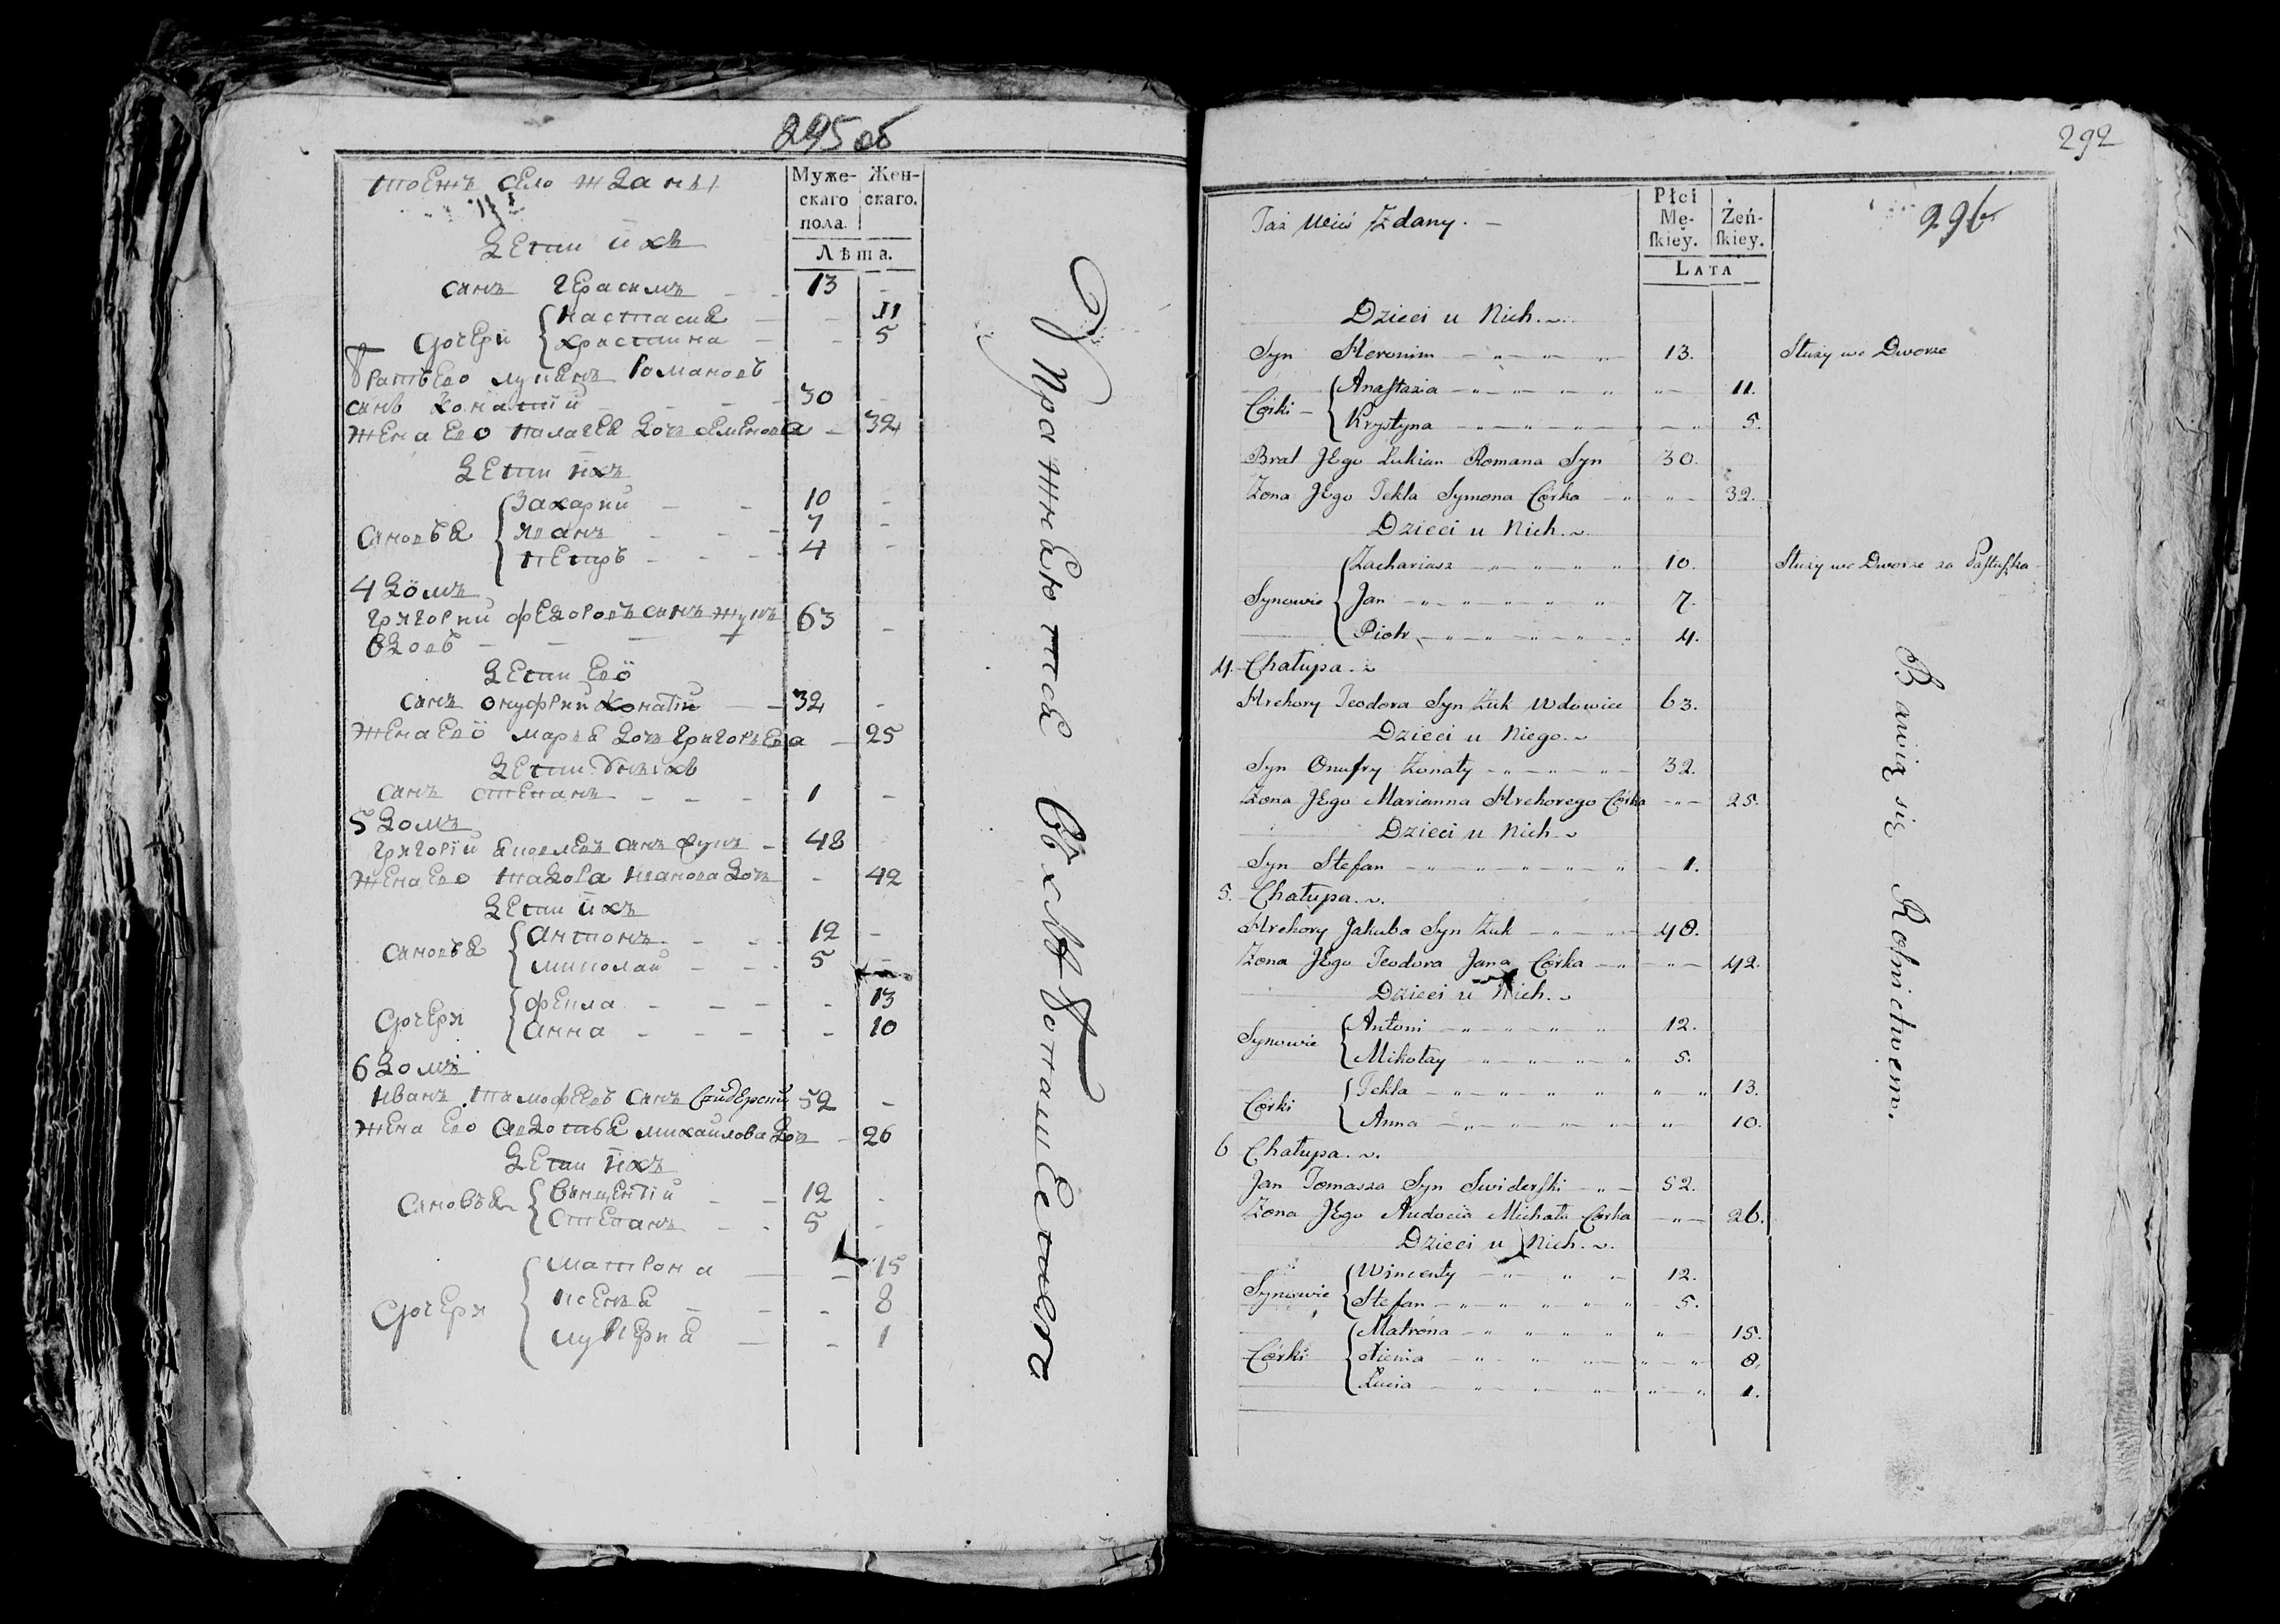 295 об
тоежъ село ждани
Муже-
скаго
пола.
Жен-
скаго.
Лѣта.
дети ихъ
синъ герасимъ - - 13 -
дочери настасиа - - 11
христина - - 5
братъ его лукянъ Романовъ
синъ жонатий - - - 30 -
жена его палагеа дочъ семенова - 32
дети ихъ
синовъя Захарий - - 10 -
яванъ - - 7 -
петръ - - 4 -
4 домъ
григорий федоровъ синъ жукъ 63 -
вдовъ - - -
дети его
синъ онуфрий жонатий - 32 -
жена его марья дочъ григорьева - 25
дети у нихъ
синъ степанъ - - - 1 -
5 домъ
григорий яковлевъ синъ жукъ - 48
жена его тадора иванова дочъ - 42
дети ихъ
синовъя антонъ - - 12 -
миколай - - 5 -
дочери фекла - - - - 13
анна - - - - 10
6 домъ
иванъ тимофеевъ синъ свидерский 52 -
жена его авдотья михаилова дочъ - 26
дети ихъ
синовъя винцентий - - 12 -
степанъ - - 5 -
дочери матрона - - 15
ксенья - - - 8
лукерия - - 1
упражняются въ хлебопашестве
292
296
Taż Wieś Zdany. -
Płci
Mę-
ſkiey.
Żeń-
ſkiey.
LATA
Dzieci u Nich.
Syn Heronim 13. Służy we Dworze
Córki Anaſtazia 11.
Krystyna 5.
Brat Jego Łukian Romana Syn 30.
Żona Jego Tekla Symona Córka 32.
Dzieci u Nich
Synowie Zachariasz 10. Służy we Dworze za Paſtuſzka
Jan 7.
Piotr 4.
4. Chałupa.
Hrehory Teodora Syn Żuk Wdowiec 63.
Dzieci u Niego.
Syn Onufry Żonaty 32.
Żona Jego Marianna Hrehorego Córka 25.
Dzieci u Nich
Syn Stefan 1.
5. Chałupa.
Hrehory Jakuba Syn Żuk 48.
Żona Jego Teodora Jana Córka 42.
Dzieci u Nich.
Synowie Antoni 12.
Mikołay 5.
Córki Tekla 13.
Anna 10.
6 Chałupa.
Jan Tomasza Syn Swiderſki 52.
Żona Jego Audocia Michała Córka 26.
Dzieci u Nich.
Synowie Wincenty 12.
Stefan 5.
Córki Matrona 15.
Xienia 8.
Łucia 1.
Bawią się Rolnictwem.